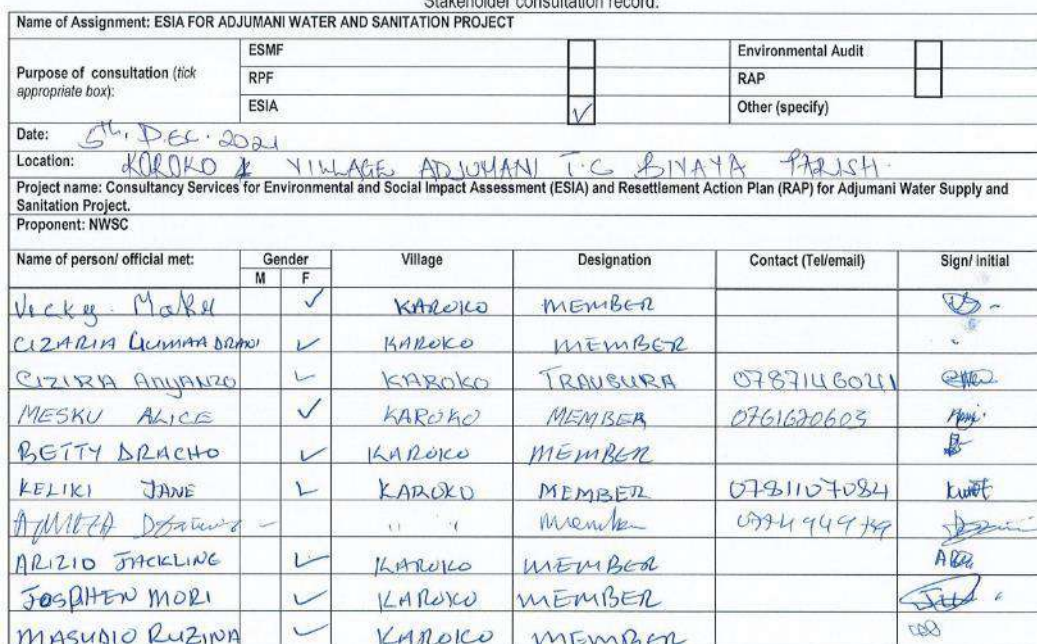 Stakeholder consultation record.
Name of Assignment: ESIA FOR ADJUMANI WATER AND SANITATION PROJECT
Purpose of consultation (tick appropriate box):
ESMF Environmental Audit
RPF RAP
ESIA ✓ Other (specify)
Date: 5th. DEC. 2021
Location: KOROKO VILLAGE ADJUMANI T.C BIYAYA PARISH.
Project name: Consultancy Services for Environmental and Social Impact Assessment (ESIA) and Resettlement Action Plan (RAP) for Adjumani Water Supply and
Sanitation Project.
Proponent: NWSC
Name of person/ official met: Gender Village Designation Contact (Tel/email) Sign/ initial
M F
Vicky ✓ KAROKO MEMBER
CIZARIA ✓ KAROKO MEMBER
CIZIRA ANYANZO ✓ KAROKO TRAUSURA
MESKU ALICE ✓ KAROKO MEMBER 0761620605
BETTY DRACHO ✓ KAROKO MEMBER
KELIKI JANE ✓ KAROKO MEMBER 0781107084
" " Member
ARIZIO JACKLING ✓ KAROKO MEMBER
JOSPHEN MORI ✓ KAROKO MEMBER
MASUDIO RUZINA ✓ KAROKO MEMBER